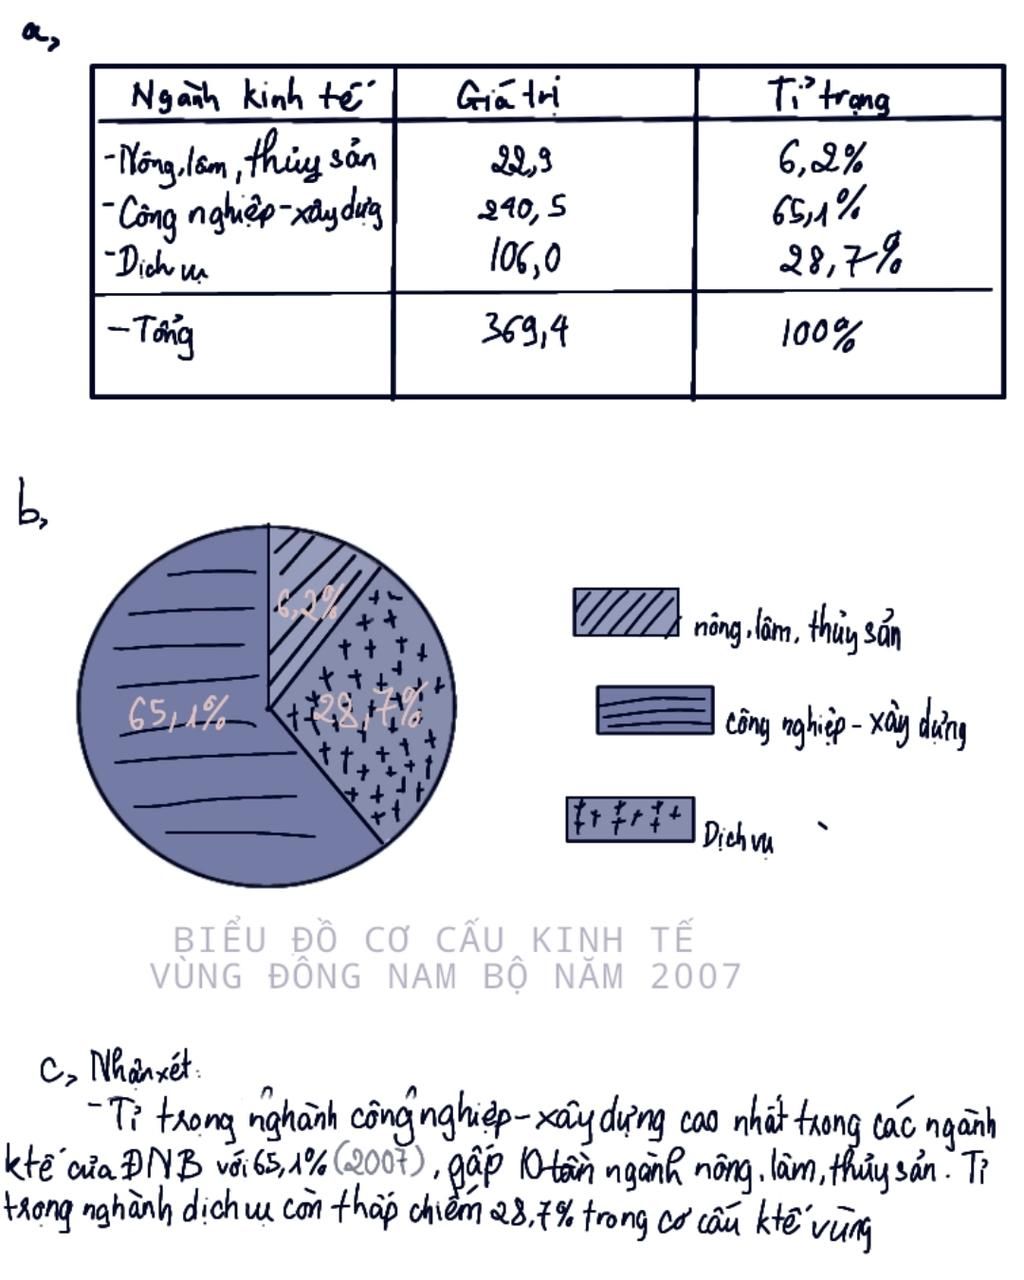 a,
Ngành kinh tế Giá trị Tỉ trọng
-Nông, lâm, thủy sản 22,9 6,2%
-Công nghiệp-xây dựng 240,5 65,1%
-Dịch vụ 106,0 28,7%
-Tổng 369,4 100%
b,
6,2%
65,1% 28,7%
nông, lâm, thủy sản
công nghiệp - xây dựng
Dịch vụ
BIỂU ĐỒ CƠ CẤU KINH TẾ
VÙNG ĐÔNG NAM BỘ NĂM 2007
c, Nhận xét:
-Tỉ trọng nghành công nghiệp-xây dựng cao nhất trong các ngành
ktế của ĐNB với 65,1% (2007), gấp 10 lần ngành nông, lâm, thủy sản. Tỉ
trọng nghành dịch vụ còn thấp chiếm 28,7% trong cơ cấu ktế vùng